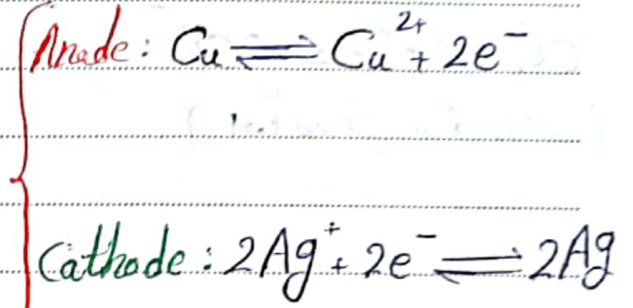 Anode: Cu ⇌ Cu²⁺ + 2e⁻
Cathode: 2Ag⁺ + 2e⁻ ⇌ 2Ag